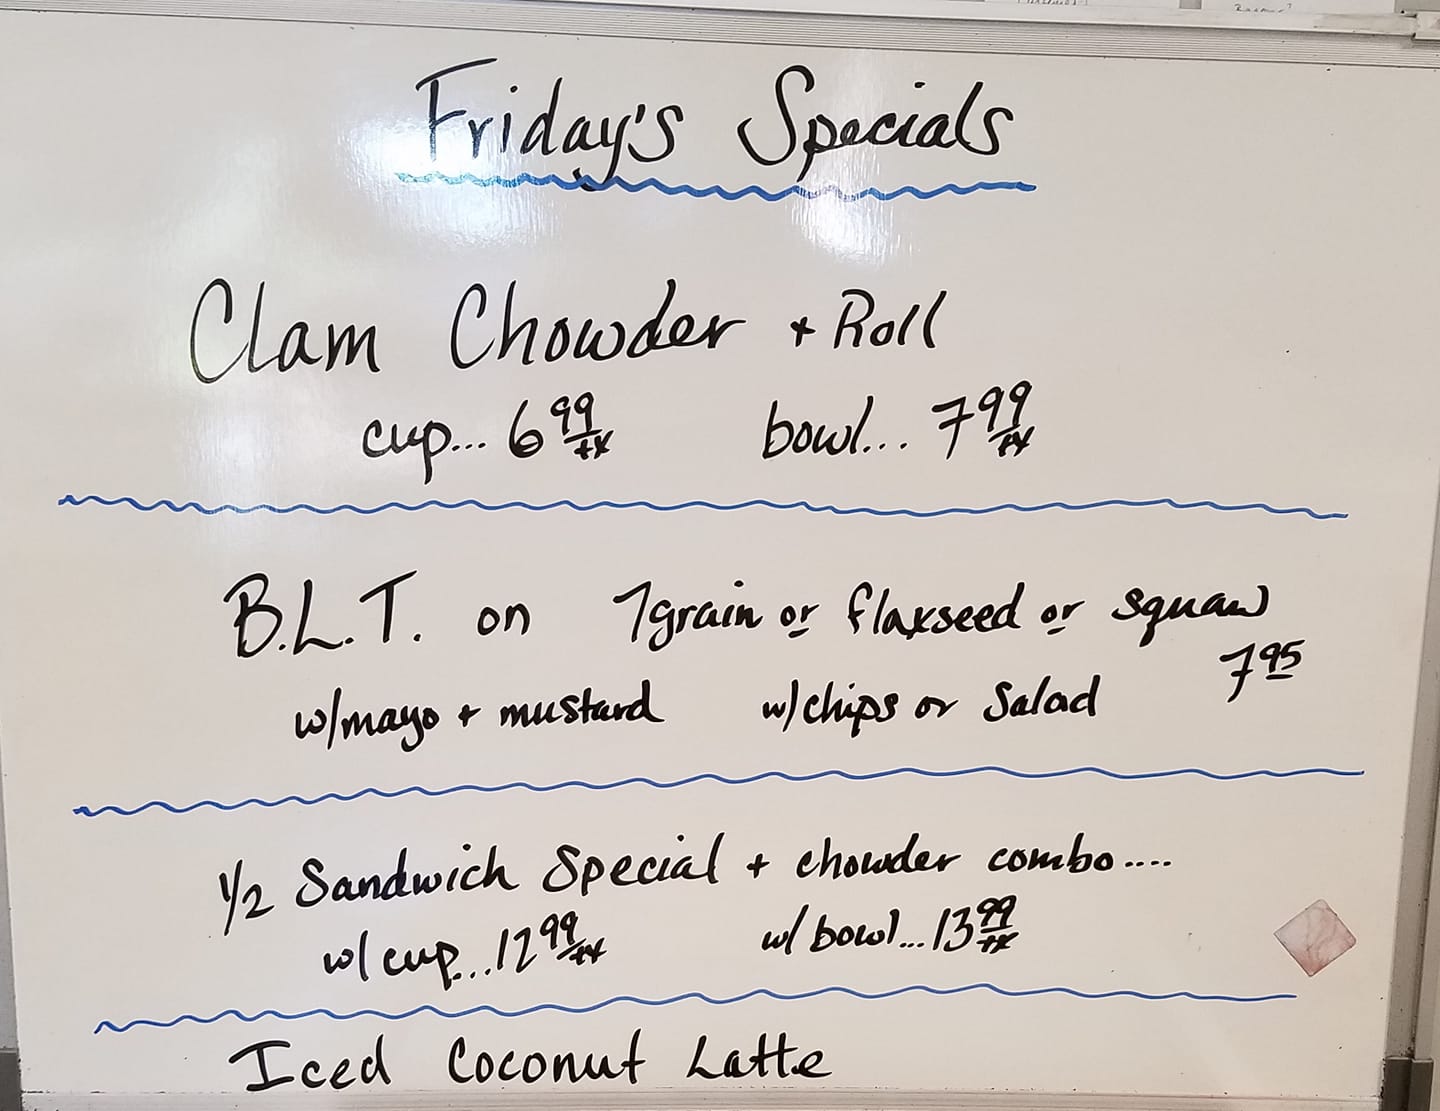 Friday's Specials
Clam Chowder + Roll
cup... 6 99 +tx bowl... 7 99 +tx
B.L.T. on 7grain or flaxseed or squaw
7 95
w/mayo + mustard w/chips or Salad
1/2 Sandwich Special + chowder combo....
w/ cup...12 99 +tx w/ bowl...13 99 +tx
Iced Coconut Latte